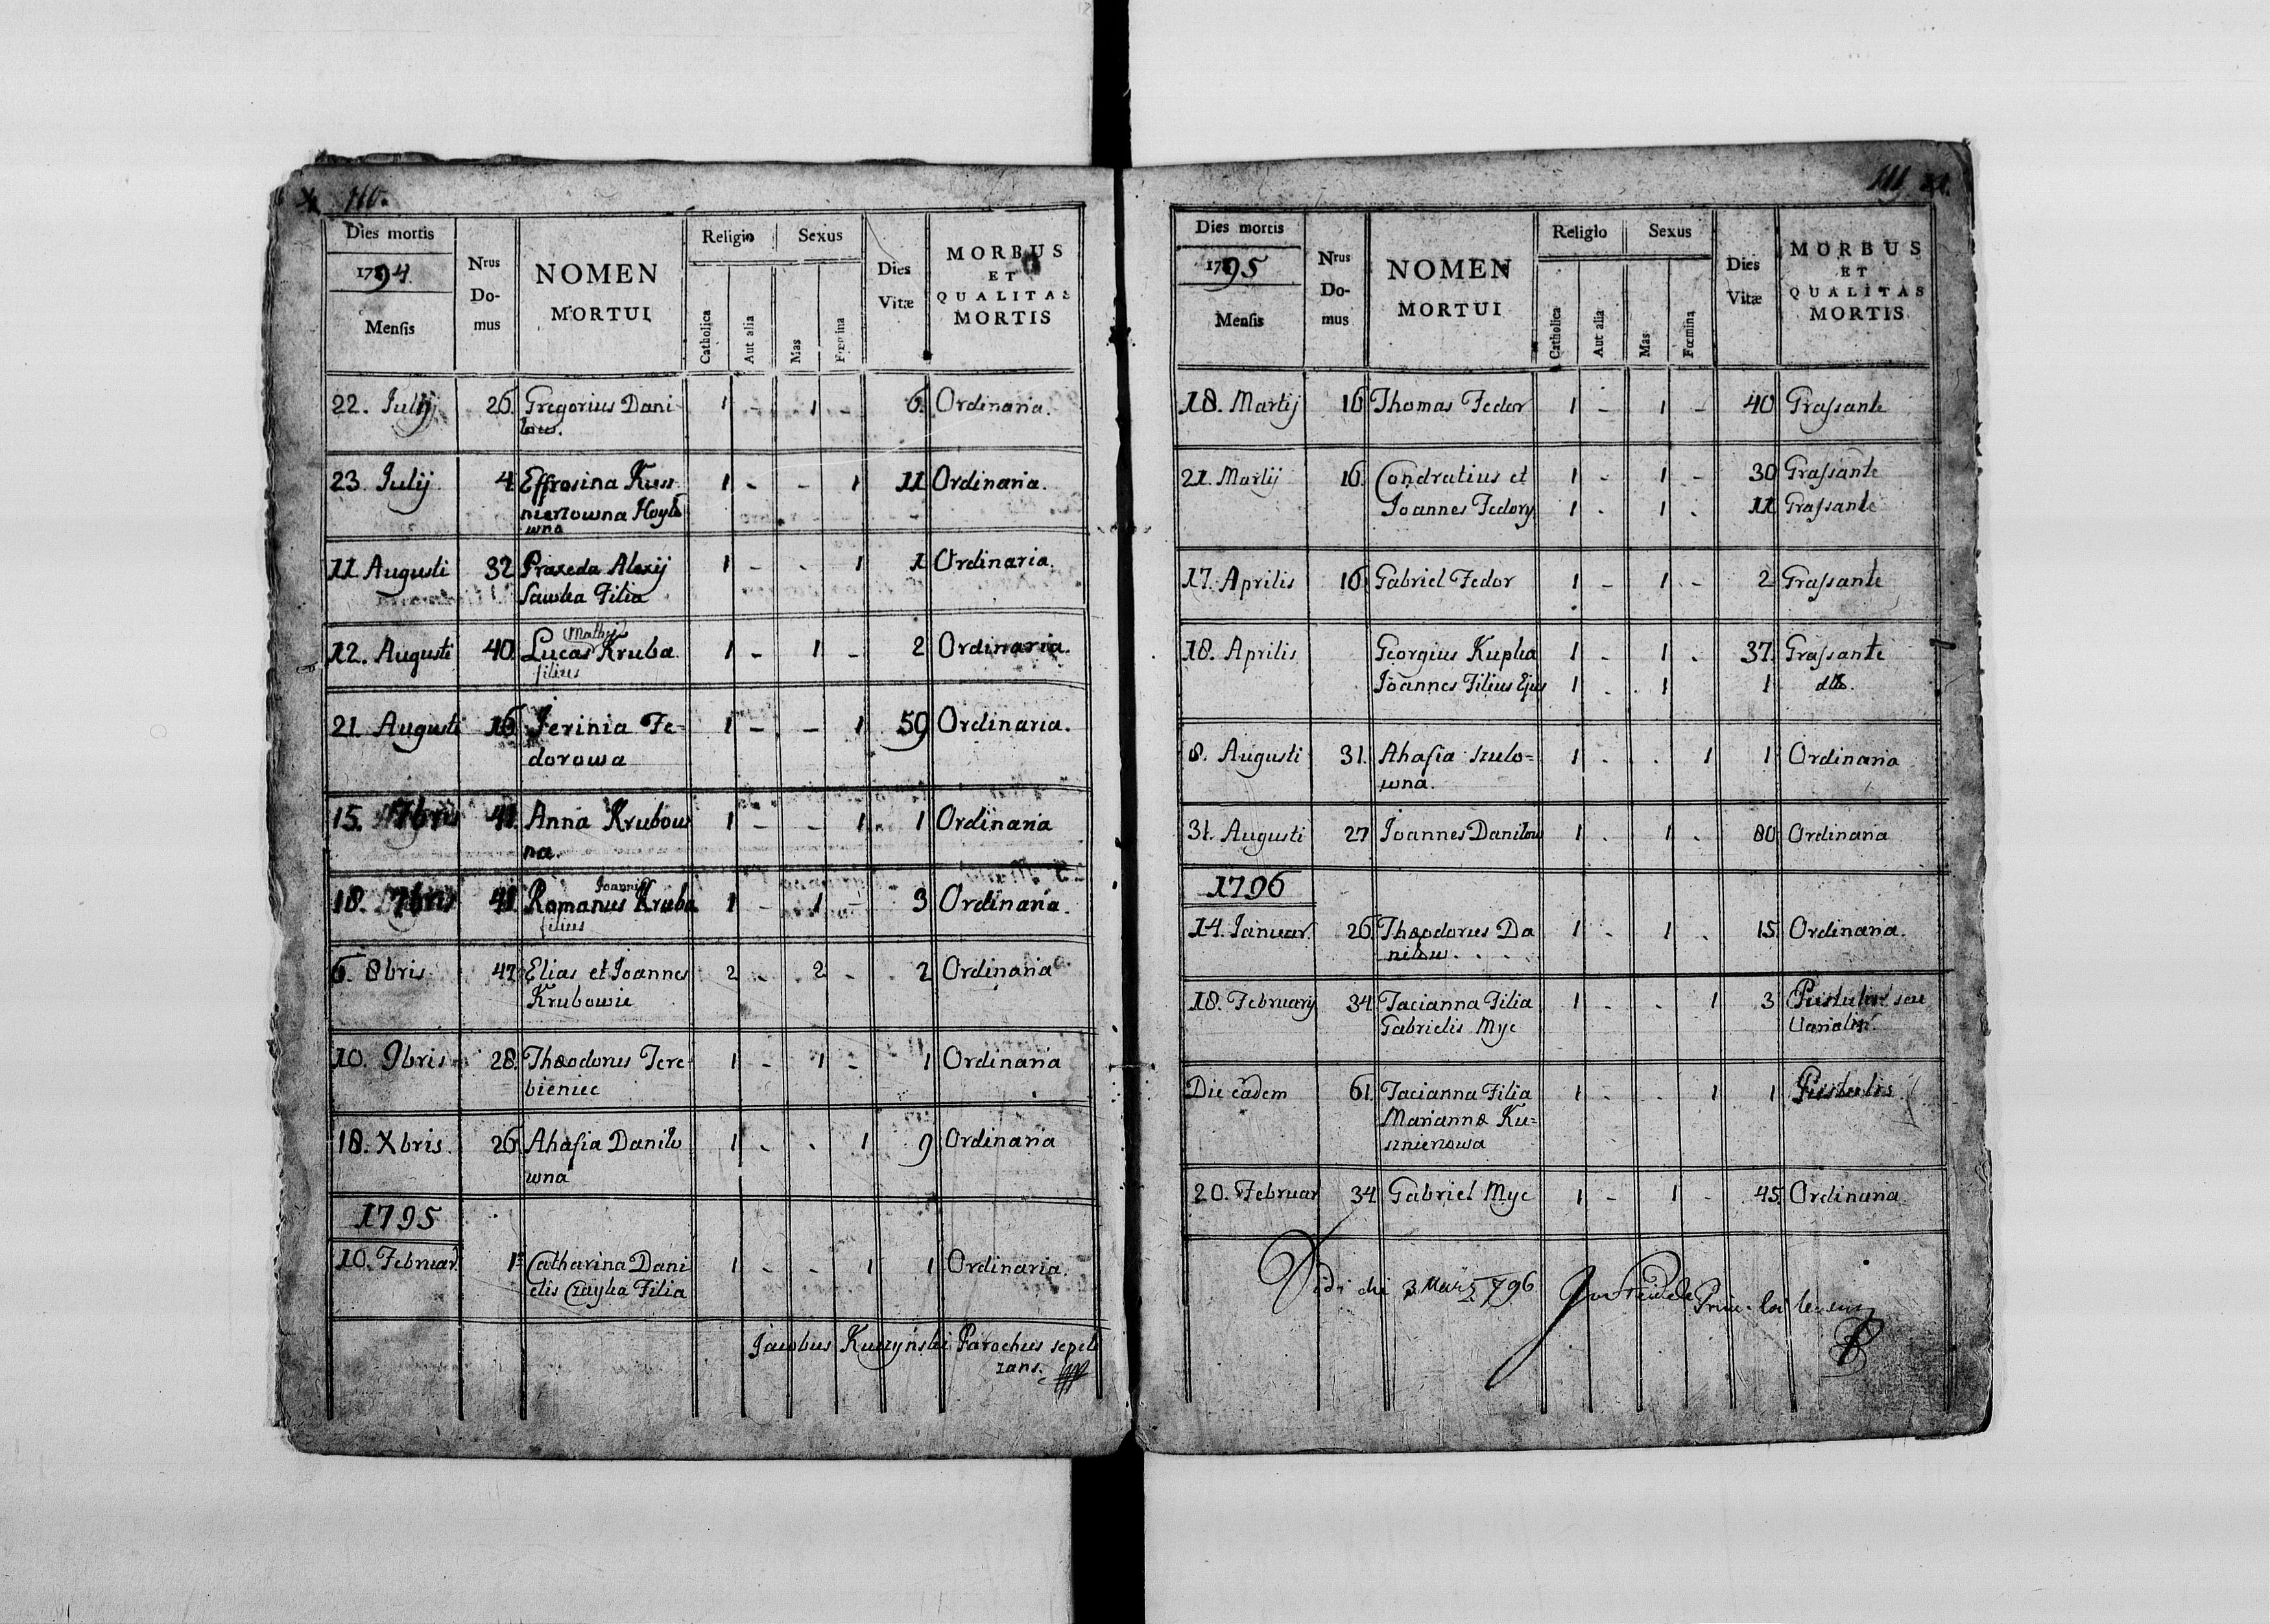 110.
Dies mortis
1794.
Mensis
Nrus Do-mus
NOMEN MORTUI
Religio
Catholica
Aut alia
Sexus
Mas
Fœmina
Dies Vitæ
MORBUS ET QUALITAS MORTIS
22. Julij 26. Gregorius Dani 1 - 1 - 6. Ordinaria.
low.
23. Julij 4 Effrosina Kusz 1 - - 1 11 Ordinaria.
nierzowna Hoyko
wna
11 Augusti 32 Praxeda Alexij 1 - - 1 1 Ordinaria.
Sawka Filia
12. Augusti 40. Lucas Mathij Kruba 1 - 1 - 2 Ordinaria.
filius
21. Augusti 16 Jerinia Fe- 1 - - 1 59 Ordinaria.
dorowa
15. 7bris 41. Anna Krubow 1 - - 1. 1 Ordinaria
na.
18. 7bris 41 Romanus Joannis Kruba 1 - 1 - 3 Ordinaria.
filius
6. 8bris 47 Elias et Joannes 2 - 2 - 2 Ordinaria
Krubowie
10. 9bris 28. Theodorus Tere- 1 - 1 - 1 Ordinaria
bieniec
18. Xbris. 26 Ahafia Danilo 1 - - 1 9 Ordinaria
wna
1795
10. Februar. 1 Catharina Dani 1 - - 1 1 Ordinaria.
elis Czayka Filia
Jacobus Kuczynski Parochus sepeli
zans.
111
Dies mortis
1795
Mensis
Nrus Do-mus
NOMEN MORTUI
Religio
Catholica
Aut alia
Sexus
Mas
Fœmina
Dies Vitæ
MORBUS ET QUALITAS MORTIS
18. Martij 16 Thomas Fedor 1 - 1 - 40 Grassante
21. Martij 16. Condratius et 1 - 1 - 30 Grassante
Joannes Fedory 1 - 1 - 11 Grassante
17. Aprilis 16 Gabriel Fedor 1 - 1 - 2 Grassante
18. Aprilis Georgius Kupka 1 - 1 . 37. Grassante
Joannes Filius Ejus 1 . . 1 1
8. Augusti 31. Ahafia Szulo= 1 . . 1 1 Ordinaria
wna.
31. Augusti 27 Joannes Danilow 1 . 1 . 80 Ordinaria
1796
14. Januar. 26 Theodorus Da 1 - 1 . 15. Ordinaria.
nilow.
18. February 34 Tacianna Filia 1 - . 1 3 Pustulis seu
Gabrielis Myc Variolis.
Die eadem 61. Tacianna Filia 1 . . 1 1 Pustulis
Mariannæ Ku=
sznierzowa
20. Februar 34 Gabriel Myc 1 - 1 - 45. Ordinaria.
Vidi die 3 März 796